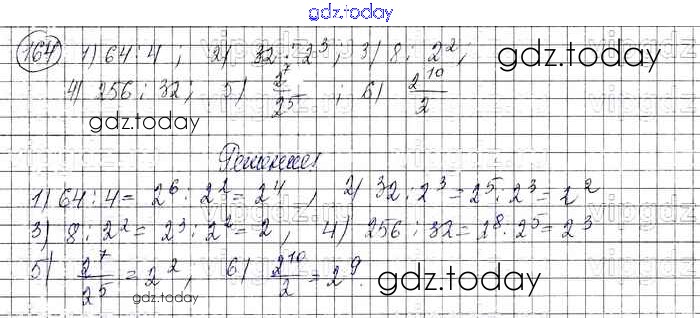 gdz.today
164 1) 64 : 4 ; 2) 32 : 2³, 3) 8 : 2²; gdz.today
4) 256 : 32; 5) 2⁷/2⁵ ; 6) 2¹⁰/2
gdz.today
Решение:
1) 64 : 4 = 2⁶ : 2² = 2⁴ , 2) 32 : 2³ = 2⁵ : 2³ = 2²
3) 8 : 2² = 2³ : 2² = 2 , 4) 256 : 32 = 2⁸ : 2⁵ = 2³
5) 2⁷/2⁵ = 2², 6) 2¹⁰/2 = 2⁹. gdz.today
gdz.today